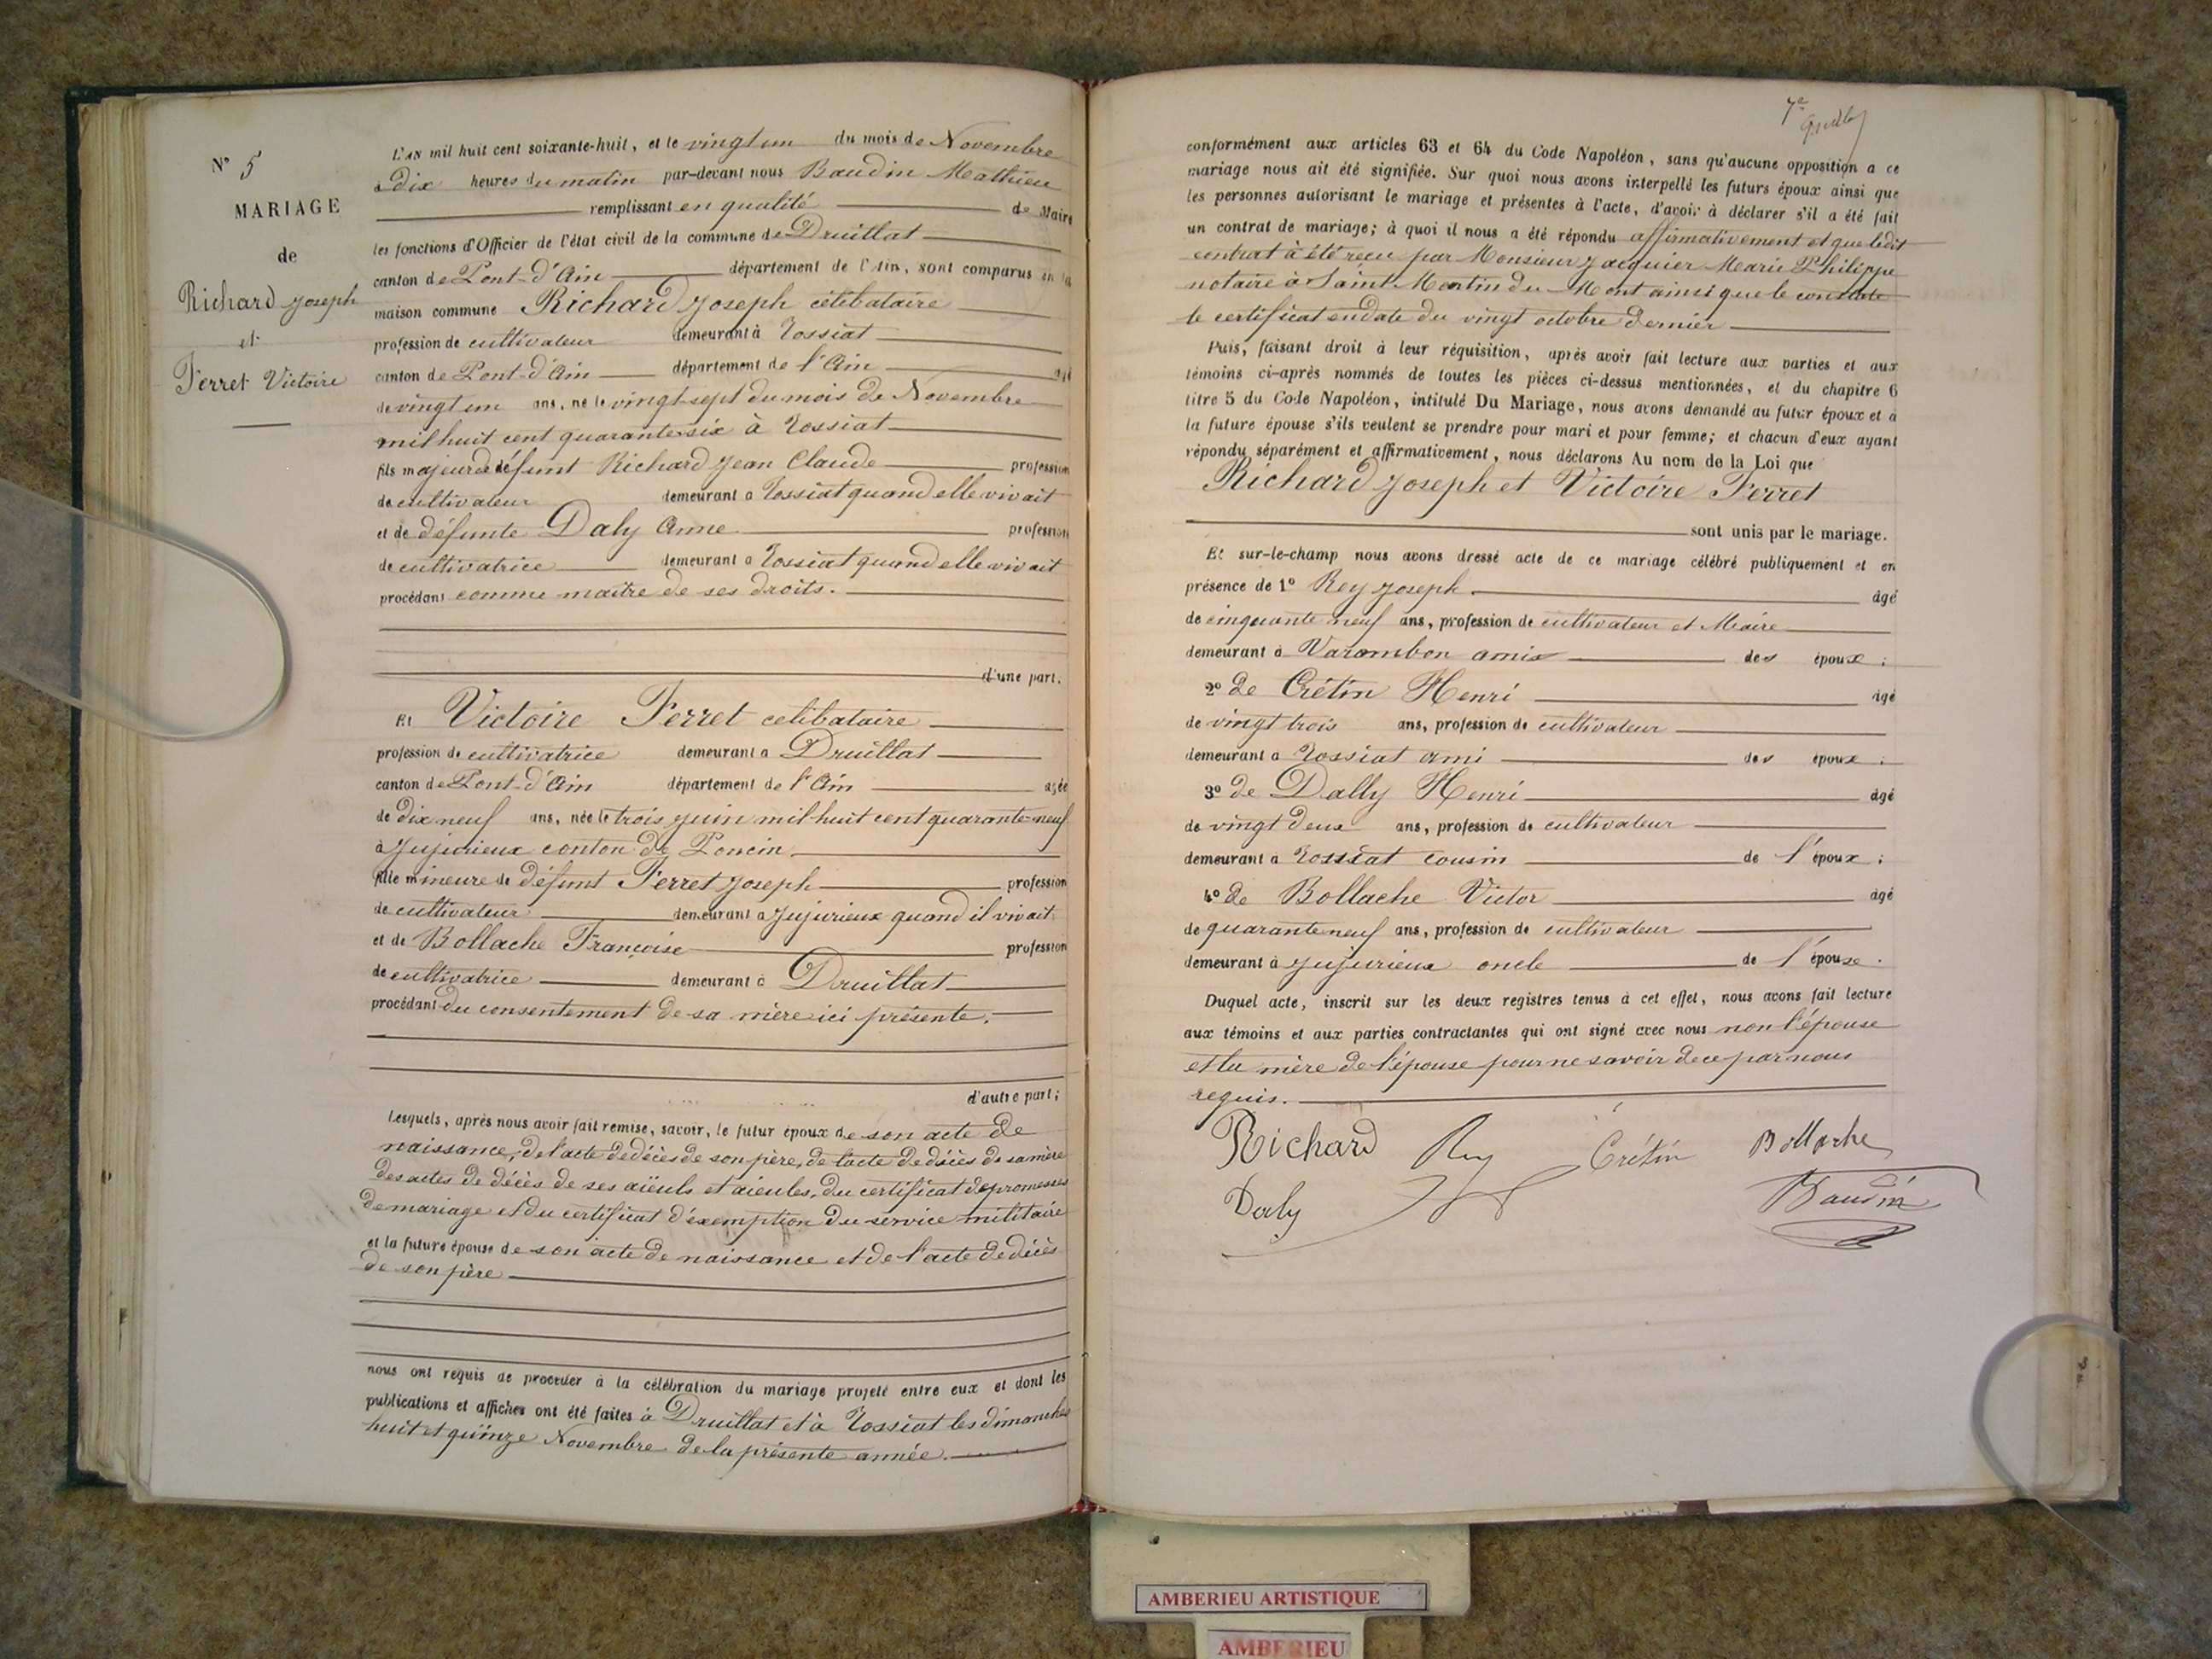 N° 5
MARIAGE
de
Richard Joseph
et
Ferret Victoire
L'AN mil huit cent soixante-huit, et le vingt un du mois de Novembre
à dix heures du matin par-devant nous Baudin Mathieu
remplissant en qualité de Maire
les fonctions d'Officier de l'état civil de la commune de Druillat
canton de Pont-d'Ain département de l'Ain, sont comparus en la
maison commune Richard Joseph célibataire
profession de cultivateur demeurant à Tossiat
canton de Pont-d'Ain département de l'Ain âgé
de vingt un ans, né le vingt-sept du mois de Novembre
mil huit cent quarante-six à Tossiat
fils majeur de défunt Richard Jean Claude profession
de cultivateur demeurant à Tossiat quand elle vivait
et de défunte Daly Anne profession
de cultivatrice demeurant à Tossiat quand elle vivait
procédant comme maître de ses droits.
d'une part.
Et Victoire Ferret celibataire
profession de cultivatrice demeurant à Druillat
canton de Pont-d'Ain département de l'Ain agée
de dix neuf ans, née le trois juin mil huit cent quarante-neuf
à Jujurieux conton de Poncin
fille mineure de défunt Ferret Joseph profession
de cultivateur demeurant à Jujurieux quand il vivait
et de Bollache Françoise profession
de cultivatrice demeurant à Druillat
procédant du consentement de sa mère ici présente.
d'autre part;
Lesquels, après nous avoir fait remise, savoir, le futur époux de son acte de
naissance, de l'acte de décès de son père, de l'acte de décès de sa mère
des actes de décès de ses aïeuls et aieules, du certificat de promesses
de mariage et du certificat d'éxemption du service militaire
et la future épouse de son acte de naissance et de l'acte de décès
de son père
nous ont requis de procéder à la célébration du mariage projeté entre eux et dont les
publications et affiches ont été faites à Druillat et à Tossiat les dimanches
huit et quinze Novembre de la présente année.
7e
conformément aux articles 63 et 64 du Code Napoléon, sans qu'aucune opposition a ce
mariage nous ait été signifiée. Sur quoi nous avons interpellé les futurs époux ainsi que
les personnes autorisant le mariage et présentes à l'acte, d'avoir à déclarer s'il a été fait
un contrat de mariage; à quoi il nous a été répondu affirmativement et que ledit
contrat à été reçu par Monsieur Jacquier Marie Philippe
notaire à Saint Martin du Mont ainsi que le constate
le certificat en date du vingt octobre dernier
Puis, faisant droit à leur réquisition, après avoir fait lecture aux parties et aux
témoins ci-après nommés de toutes les pièces ci-dessus mentionnées, et du chapitre 6
titre 5 du Code Napoléon, intitulé Du Mariage, nous avons demandé au futur époux et à
la future épouse s'ils veulent se prendre pour mari et pour femme; et chacun d'eux ayant
répondu séparément et affirmativement, nous déclarons Au nom de la Loi que
Richard Joseph et Victoire Ferret
sont unis par le mariage.
Et sur-le-champ nous avons dressé acte de ce mariage célébré publiquement et en
présence de 1° Rey Joseph. âgé
de cinquante neuf ans, profession de cultivateur et Maire
demeurant à Varambon amis des époux;
2° de Crétin Henri âgé
de vingt trois ans, profession de cultivateur
demeurant à Tossiat ami des époux;
3° de Dally Henri âgé
de vingt deux ans, profession de cultivateur
demeurant à Tossiat cousin de l'époux;
4° de Bollache Victor âgé
de quarante neuf ans, profession de cultivateur
demeurant à Jujurieux oncle de l'épouse.
Duquel acte, inscrit sur les deux registres tenus à cet effet, nous avons fait lecture
aux témoins et aux parties contractantes qui ont signé avec nous non l'épouse
et la mère de l'épouse pour ne savoir de ce par nous
requis.
Richard Rey Crétin Bollache
Daly Baudin
AMBERIEU ARTISTIQUE
AMBERIEU